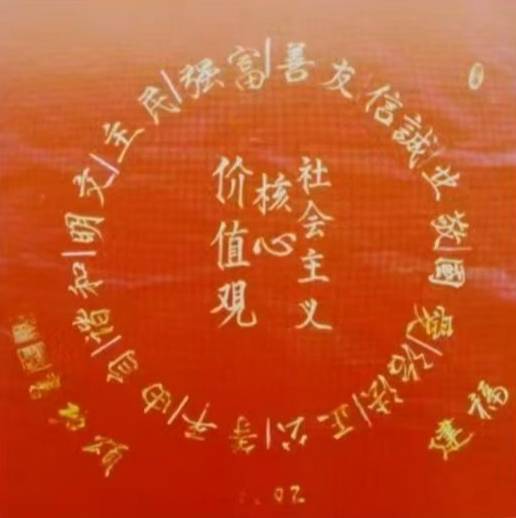 社会主义
核心
价值观
富强|民主|文明|和谐|自由|平等|公正|法治|愛國|敬业|誠信|友善|
福建